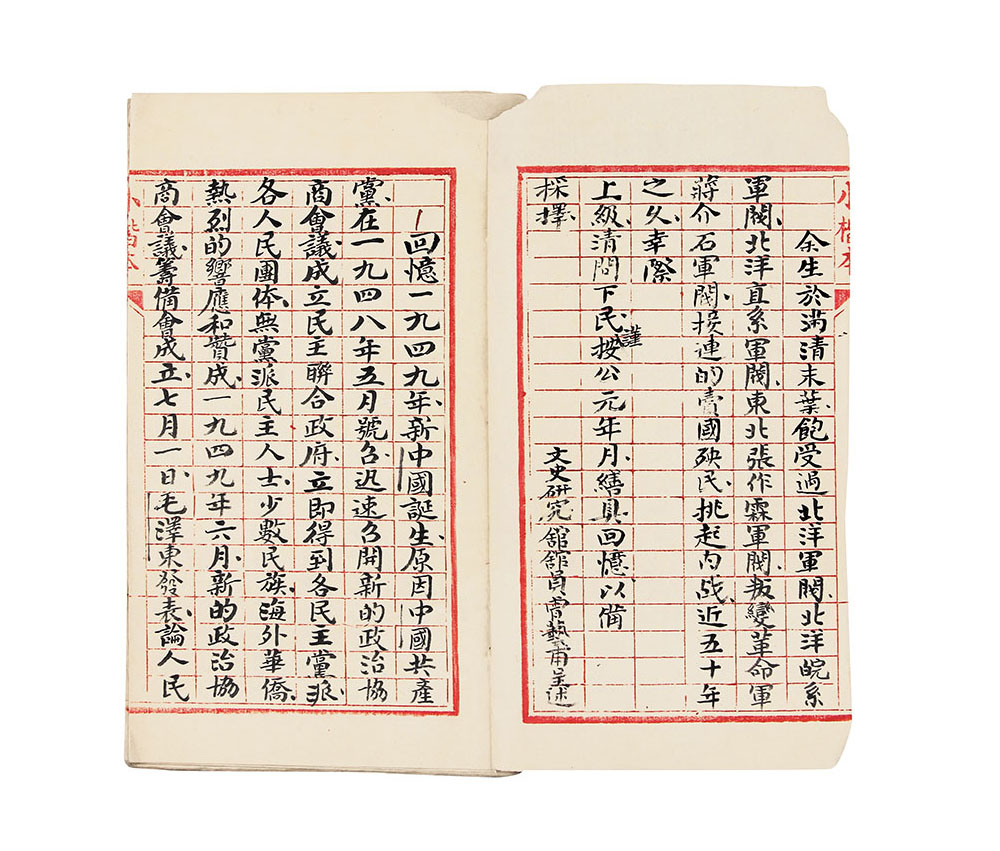 小楷本
余生於滿清末葉飽受過北洋軍閥、北洋皖系
軍閥、北洋直系軍閥、東北張作霖軍閥、叛變革命軍
蔣介石軍閥、接連的賣國殃民、挑起內战、近五十年
之久、幸際
上級清問下民、謹按公元年月、繕具回憶、以備
採擇、
文史研究舘舘員曹藝甫呈述
一回憶一九四九年、新中國誕生、原因中國共產
黨、在一九四八年五月號召、迅速召開新的政治協
商會議、成立民主聯合政府、立即得到各民主黨派、
各人民團体、無黨派民主人士、少數民族、海外華僑、
熱烈的響應和贊成、一九四九年六月、新的政治協
商會議、籌備會成立、七月一日、毛澤東發表、論人民
小楷本